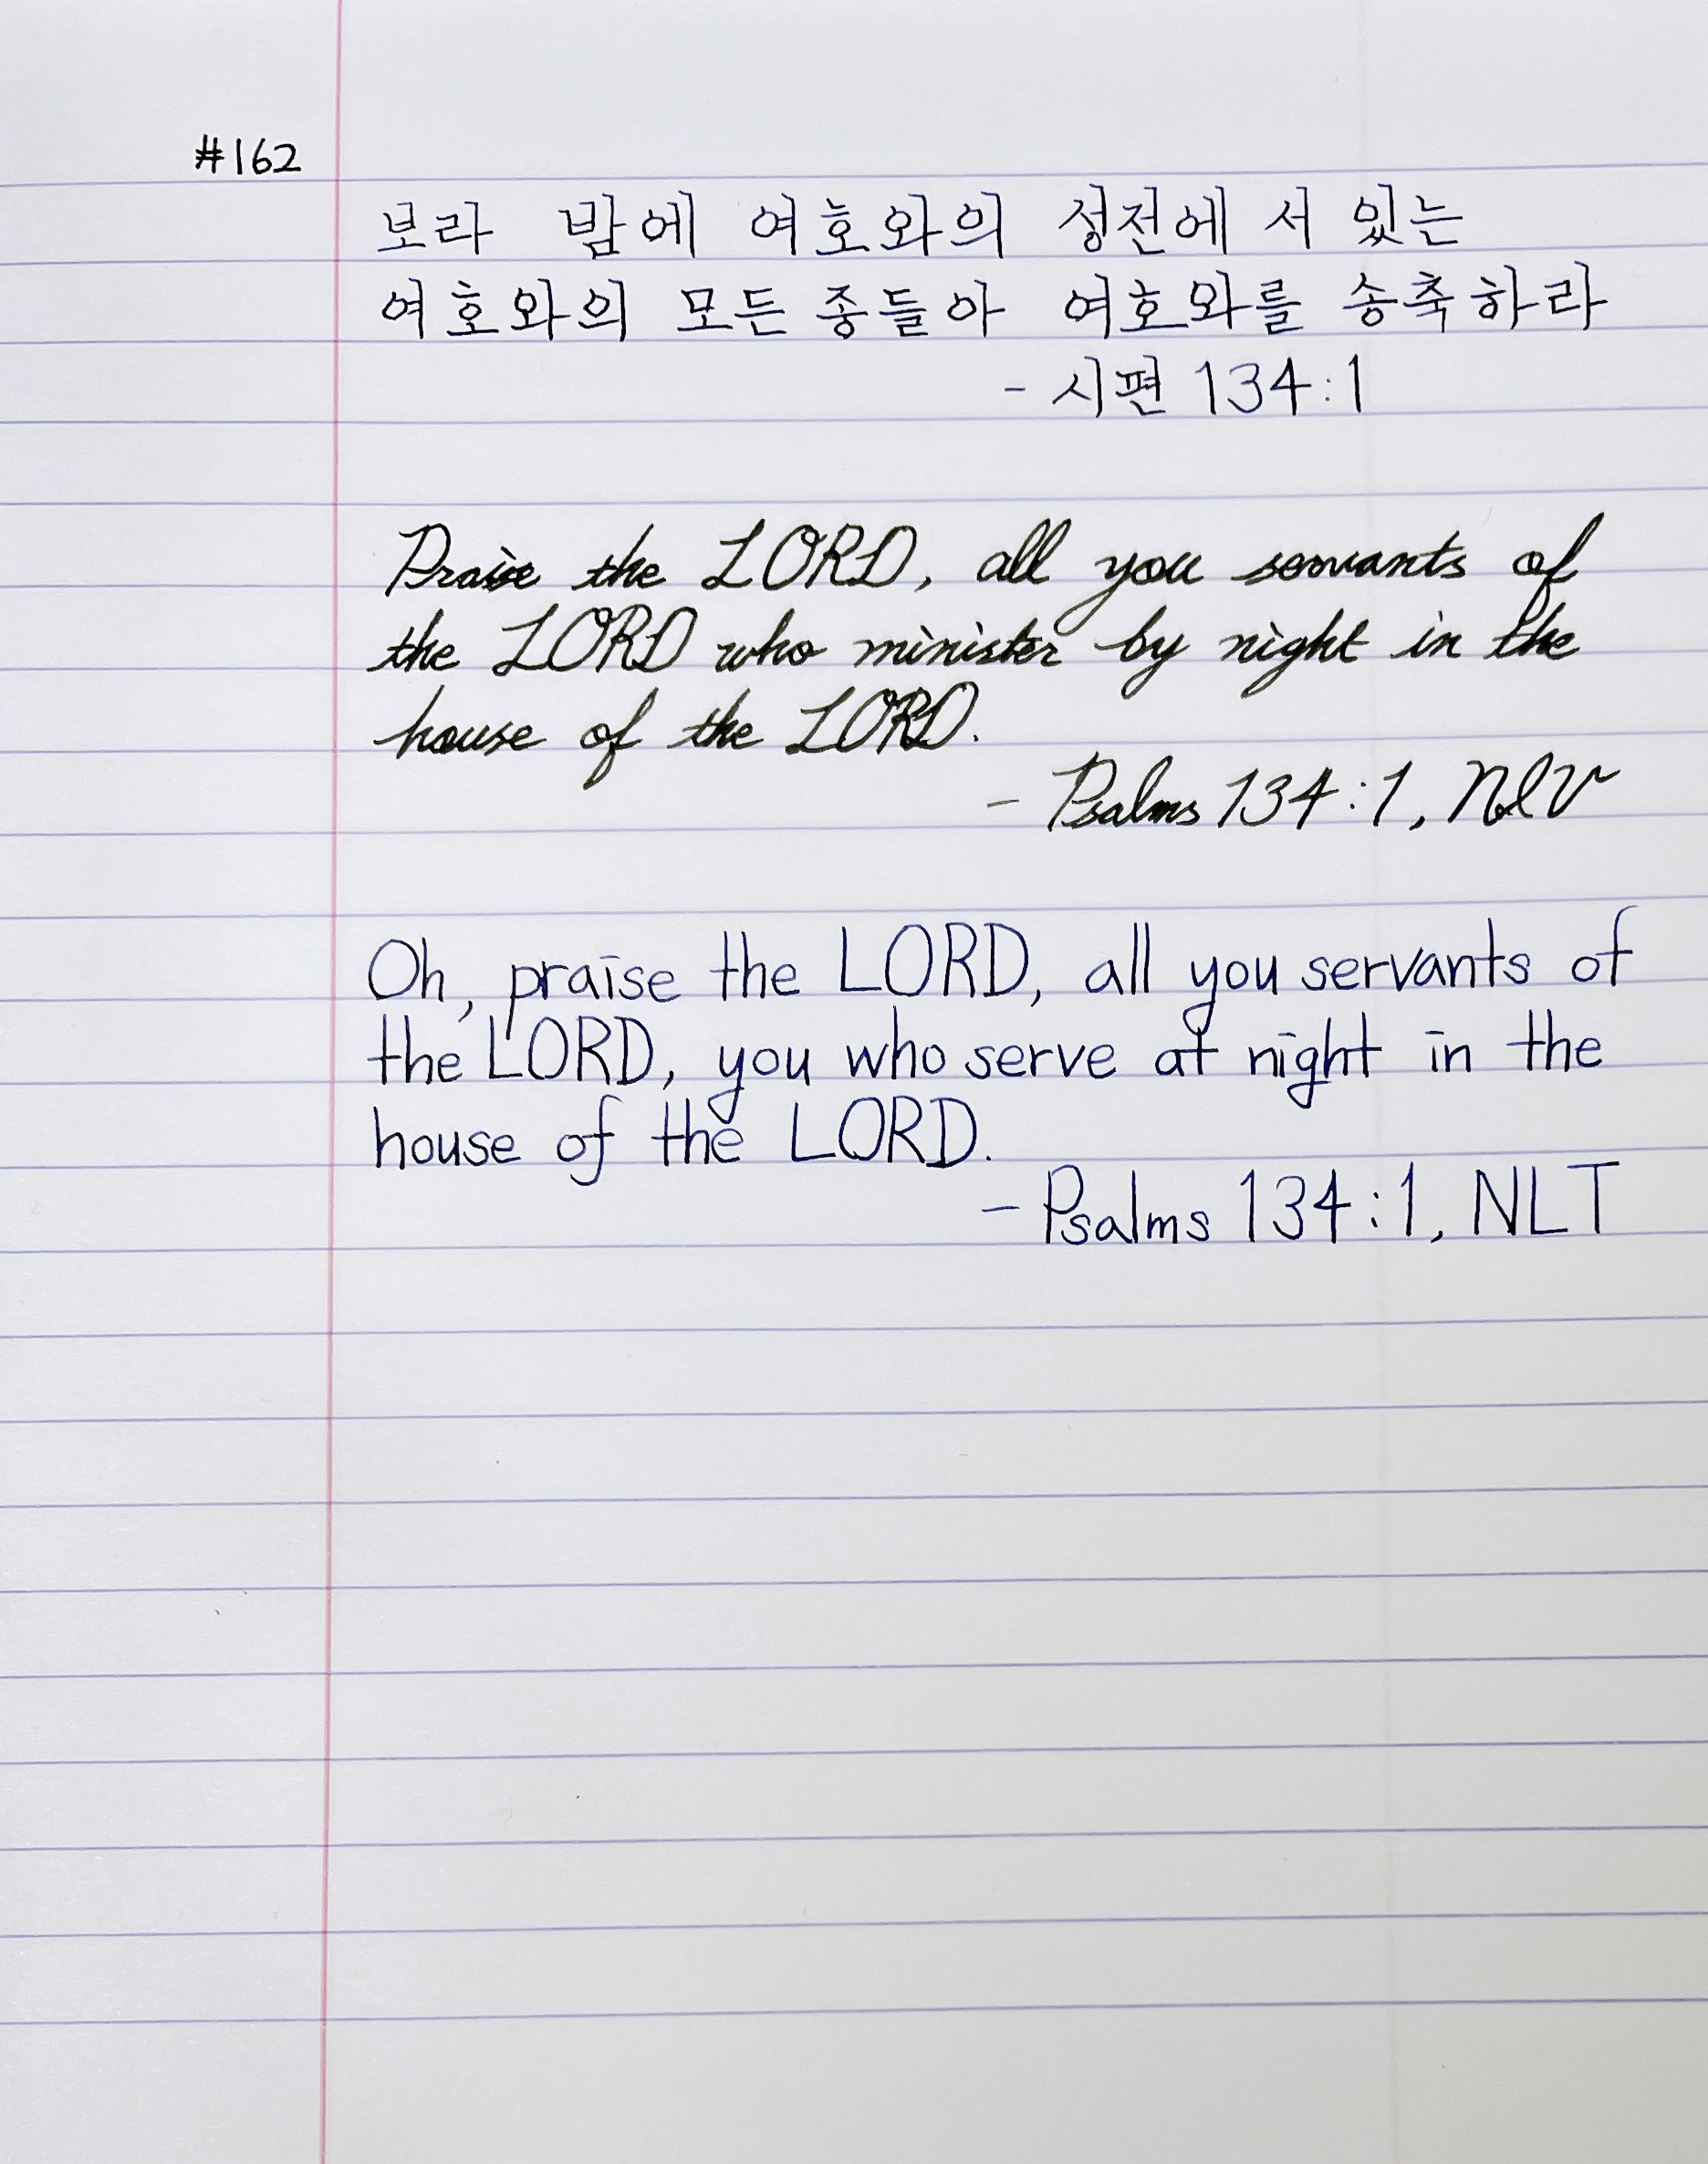 #162
보라 밤에 여호와의 성전에 서 있는
여호와의 모든 종들아 여호와를 송축하라
- 시편 134:1
Praise the LORD, all you servants of
the LORD who minister by night in the
house of the LORD.
- Psalms 134:1, NIV
Oh, praise the LORD, all you servants of
the LORD, you who serve at night in the
house of the LORD.
- Psalms 134:1, NLT